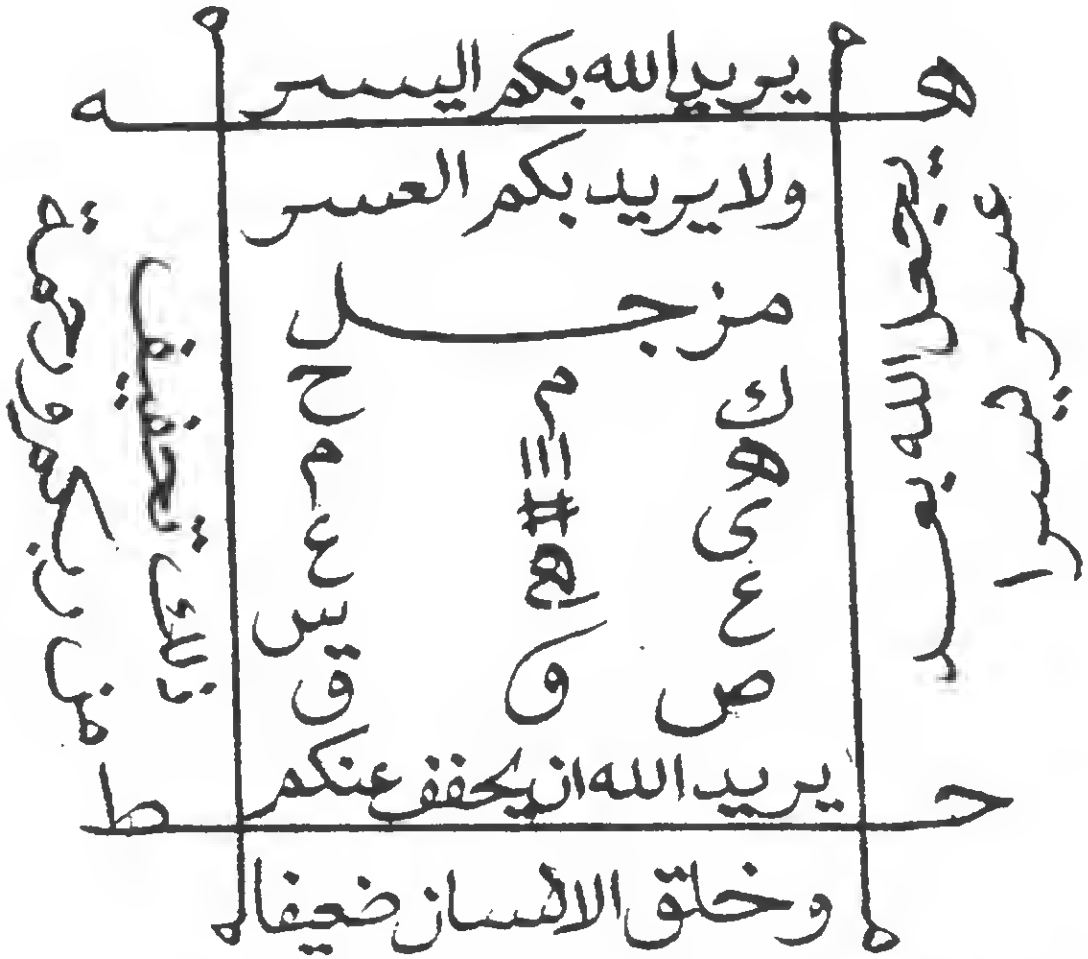 يريد الله بكم اليسر
ه
ه
ولا يريد بكم العسر
مزجل
ل
ك
م
ح
ه
م
ى
ع
ع
س
ص
و
ق
يريد الله ان يحفف عنكم
ح
ط
وخلق الانسان ضعيفا
الله بعد
عسر يسرا
ذلك تحفيف
من ربكم ورحمة